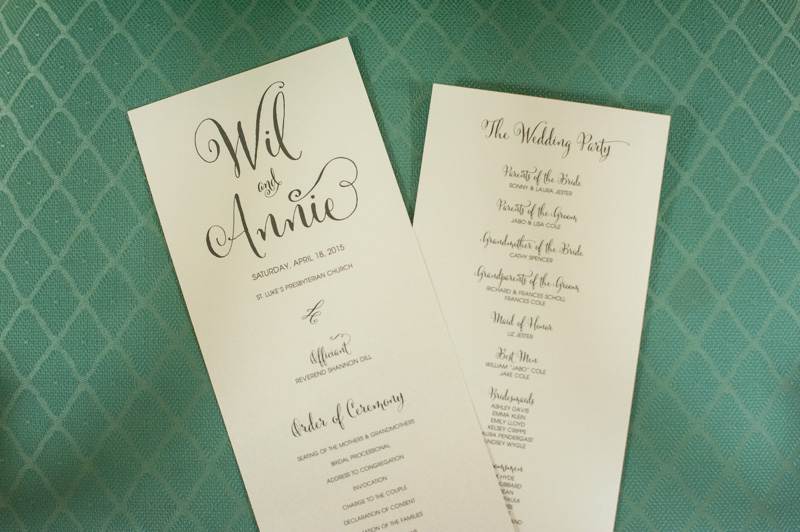 Wil
and
Annie
SATURDAY, APRIL 18, 2015
ST. LUKE'S PRESBYTERIAN CHURCH
Officiant
REVEREND SHANNON DILL
Order of Ceremony
SEATING OF THE MOTHERS & GRANDMOTHERS
BRIDAL PROCESSIONAL
ADDRESS TO CONGREGATION
INVOCATION
CHARGE TO THE COUPLE
DECLARATION OF CONSENT
OF THE FAMILIES
The Wedding Party
Parents of the Bride
SONNY & LAURA JESTER
Parents of the Groom
JABO & LISA COLE
Grandmother of the Bride
CATHY SPENCER
Grandparents of the Groom
RICHARD & FRANCES SCHOLL
FRANCES COLE
Maid of Honor
LIZ JESTER
Best Men
WILLIAM "JABO" COLE
JAKE COLE
Bridesmaids
ASHLEY DAVIS
EMMA KLEIN
EMILY LLOYD
KELSEY CRIPPS
LAURA PENDERGAST
LINDSEY WYGLE
HYDE